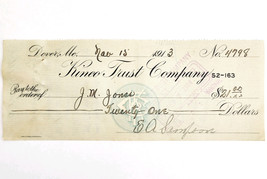 Dover, Mo. Nov 15 1913 No. 4798
Kinco Trust Company 52-163
Pay to the order of J. M. Jones $21.00
Twenty One Dollars
E A Simpson